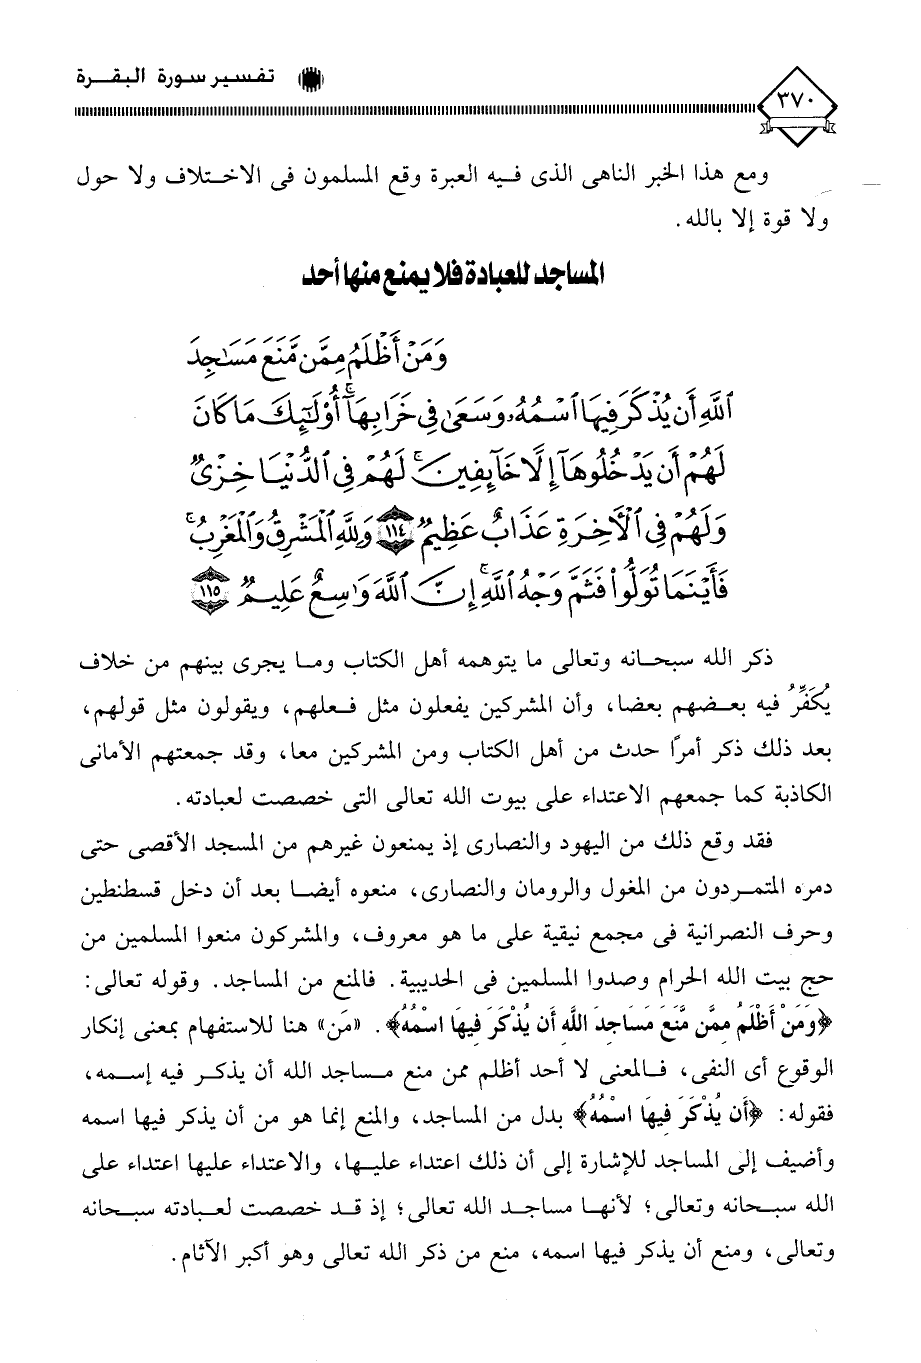 تفسير سورة البقرة
٣٧٠
ومع هذا الخبر الناهى الذى فيه العبرة وقع المسلمون فى الاختلاف ولا حول
ولا قوة إلا بالله.
المساجد للعبادة فلا يمنع منها أحد
وَمَنْ أَظْلَمُ مِمَّن مَّنَعَ مَسَٰجِدَ
ٱللَّهِ أَن يُذْكَرَ فِيهَا ٱسْمُهُۥ وَسَعَىٰ فِى خَرَابِهَآ ۚ أُو۟لَٰٓئِكَ مَا كَانَ
لَهُمْ أَن يَدْخُلُوهَآ إِلَّا خَآئِفِينَ ۚ لَهُمْ فِى ٱلدُّنْيَا خِزْىٌ
وَلَهُمْ فِى ٱلْأَخِرَةِ عَذَابٌ عَظِيمٌ ١١٤ وَلِلَّهِ ٱلْمَشْرِقُ وَٱلْمَغْرِبُ ۚ
فَأَيْنَمَا تُوَلُّوا۟ فَثَمَّ وَجْهُ ٱللَّهِ ۚ إِنَّ ٱللَّهَ وَٰسِعٌ عَلِيمٌ ١١٥
ذكر الله سبحانه وتعالى ما يتوهمه أهل الكتاب وما يجرى بينهم من خلاف
يُكَفِّرُ فيه بعضهم بعضا، وأن المشركين يفعلون مثل فعلهم، ويقولون مثل قولهم،
بعد ذلك ذكر أمرًا حدث من أهل الكتاب ومن المشركين معا، وقد جمعتهم الأمانى
الكاذبة كما جمعهم الاعتداء على بيوت الله تعالى التى خصصت لعبادته.
فقد وقع ذلك من اليهود والنصارى إذ يمنعون غيرهم من المسجد الأقصى حتى
دمره المتمردون من المغول والرومان والنصارى، منعوه أيضا بعد أن دخل قسطنطين
وحرف النصرانية فى مجمع نيقية على ما هو معروف، والمشركون منعوا المسلمين من
حج بيت الله الحرام وصدوا المسلمين فى الحديبية. فالمنع من المساجد. وقوله تعالى:
﴿وَمَنْ أَظْلَمُ مِمَّن مَّنَعَ مَسَاجِدَ اللَّهِ أَن يُذْكَرَ فِيهَا اسْمُهُ﴾. «مَن» هنا للاستفهام بمعنى إنكار
الوقوع أى النفى، فالمعنى لا أحد أظلم ممن منع مساجد الله أن يذكر فيه إسمه،
فقوله: ﴿أَن يُذْكَرَ فِيهَا اسْمُهُ﴾ بدل من المساجد، والمنع إنما هو من أن يذكر فيها اسمه
وأضيف إلى المساجد للإشارة إلى أن ذلك اعتداء عليها، والاعتداء عليها اعتداء على
الله سبحانه وتعالى؛ لأنها مساجد الله تعالى؛ إذ قد خصصت لعبادته سبحانه
وتعالى، ومنع أن يذكر فيها اسمه، منع من ذكر الله تعالى وهو أكبر الآثام.